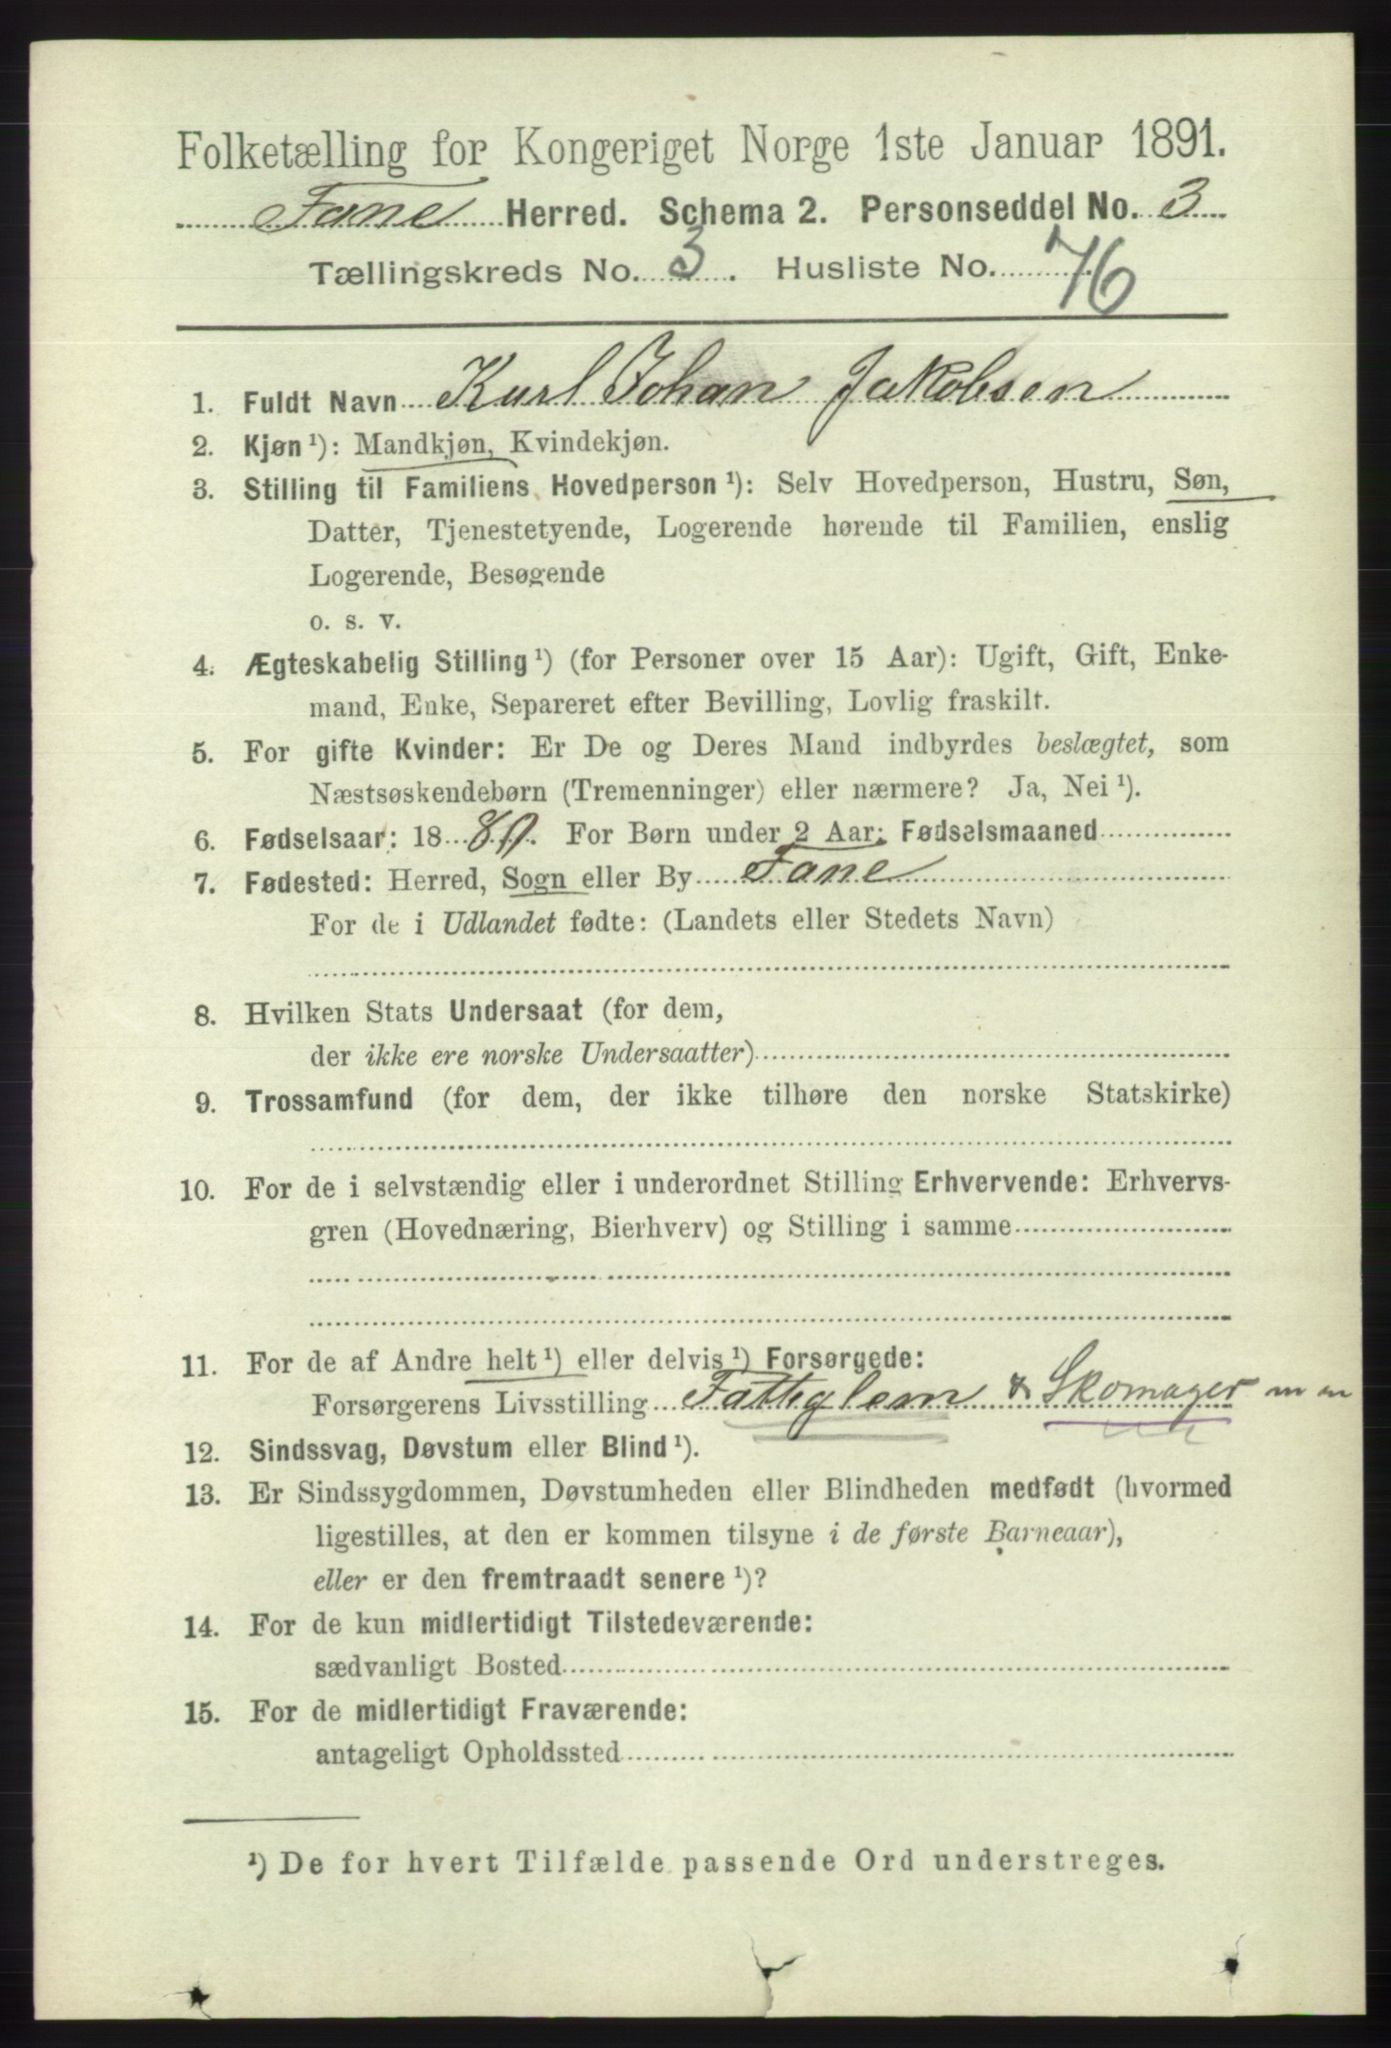 Folketælling for Kongeriget Norge 1ste Januar 1891.
Fane Herred. Schema 2. Personseddel No. 3
Tællingskreds No. 3. Husliste No. 76
1. Fuldt Navn Karl Johan Jakobsen
2. Kjøn¹): Mandkjøn, Kvindekjøn.
3. Stilling til Familiens Hovedperson¹): Selv Hovedperson, Hustru, Søn,
Datter, Tjenestetyende, Logerende hørende til Familien, enslig
Logerende, Besøgende
o. s. v.
4. Ægteskabelig Stilling¹) (for Personer over 15 Aar): Ugift, Gift, Enke-
mand, Enke, Separeret efter Bevilling, Lovlig fraskilt.
5. For gifte Kvinder: Er De og Deres Mand indbyrdes beslægtet, som
Næstsøskendebørn (Tremenninger) eller nærmere? Ja, Nei¹).
6. Fødselsaar: 1880. For Børn under 2 Aar: Fødselsmaaned
7. Fødested: Herred, Sogn eller By Fane
For de i Udlandet fødte: (Landets eller Stedets Navn)
8. Hvilken Stats Undersaat (for dem,
der ikke ere norske Undersaatter)
9. Trossamfund (for dem, der ikke tilhøre den norske Statskirke)
10. For de i selvstændig eller i underordnet Stilling Erhvervende: Erhvervs-
gren (Hovednæring, Bierhverv) og Stilling i samme
11. For de af Andre helt¹) eller delvis¹) Forsørgede:
Forsørgerens Livsstilling Fattiglem & Skomager m m
12. Sindssvag, Døvstum eller Blind¹).
13. Er Sindssygdommen, Døvstumheden eller Blindheden medfødt (hvormed
ligestilles, at den er kommen tilsyne i de første Barneaar),
eller er den fremtraadt senere¹)?
14. For de kun midlertidigt Tilstedeværende:
sædvanligt Bosted
15. For de midlertidigt Fraværende:
antageligt Opholdssted
¹) De for hvert Tilfælde passende Ord understreges.